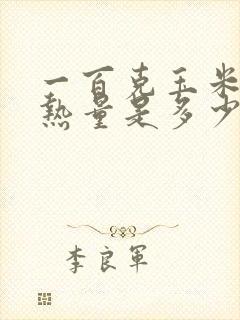 一百克玉米
熱量是多少
李良軍